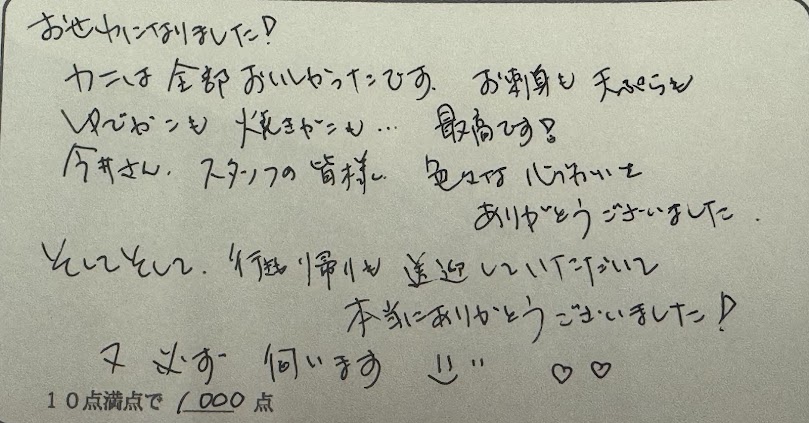 おせわになりました!
カニは全部おいしかったです。お刺身も天ぷらも
ゆでがにも焼きがにも… 最高です!
今井さん、スタッフの皆様、色々な心づかいを
ありがとうございました。
そしてそして、行きも帰りも送迎していただいて
本当にありがとうございました!
又必ず伺います ♡ ♡
10点満点で 1000 点